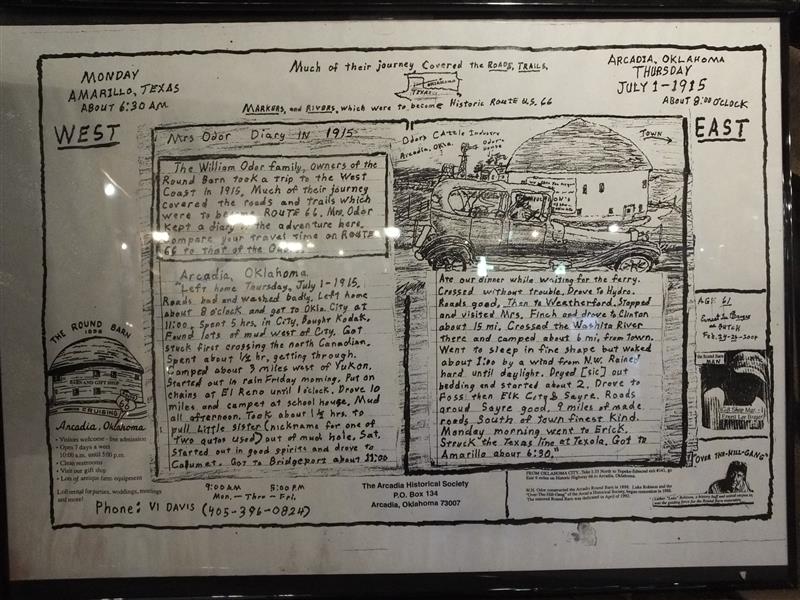 MONDAY
AMARILLO, TEXAS
ABOUT 6:30 AM
WEST
Much of their journey Covered the ROADS, TRAILS,
OKLAHOMA
TEXAS
MARKERS, and RIVERS, which were to become Historic ROUTE U.S. 66
ARCADIA, OKLAHOMA
THURSDAY
JULY 1-1915
ABOUT 8:00 O'CLOCK
EAST
Mrs Odor Diary IN 1915
The William Odor family, owners of the
Round Barn took a trip to the West
Coast in 1915. Much of their journey
covered the roads and trails which
were to become ROUTE 66. Mrs. Odor
Kept a diary of the adventure here.
Compare your travel time on ROUTE
66 to that of the
Arcadia, Oklahoma.
"Left home Thursday, July 1-1915.
Roads bad and washed badly. Left home
about 8 o'clock and got to Okla. City at
11:00. Spent 5 hrs. in City, Bought Kodak,
Found lots of mud west of City. Got
stuck first crossing the north Canadian.
Spent about 1/2 hr. getting through.
Camped about 3 miles west of Yukon.
Started out in rain Friday morning. Put on
chains at El Reno until 1 o'clock. Drove 10
miles and camped at school house. Mud
all afternoon. Took about 1 1/2 hrs. to
pull Little Sister (nickname for one of
two autos used) out of mud hole. Sat.
started out in good spirits and drove to
Calumet. Got to Bridgeport about 11:00
Odors Cattle Industry
Arcadia, Okla.
Odor's
House
TOWN
Ate our dinner while waiting for the ferry.
Crossed without trouble. Drove to Hydro.
Roads good, Then to Weatherford. Stopped
and visited Mrs. Finch and drove to Clinton
about 15 mi. Crossed the Washita River
there and camped about 6 mi. from Town.
Went to sleep in fine shape but waked
about 1:00 by a wind from N.W. Rained
hard until daylight. Dryed [sic] out
bedding end started about 2. Drove to
Foss then Elk City & Sayre. Roads
aroud Sayre good, 9 miles of made
roads South of Town finest Kind.
Monday morning went to Erick.
Struck the Texas line at Texola. Got to
Amarillo about 6:30."
THE ROUND BARN
1898
BARN AND GIFT SHOP
66
CRUISING
Arcadia, Oklahoma
• Visitors welcome - free admission
• Open 7 days a week
10:00 a.m. until 5:00 p.m.
• Clean restrooms
• Visit our gift shop
• Lots of antique farm equipment
Loft rental for parties, weddings, meetings
and more!
9:00 AM 5:00 PM
Mon. - Thru - Fri.
Phone: VI DAVIS (405-396-0824)
The Arcadia Historical Society
P.O. Box 134
Arcadia, Oklahoma 73007
AGE 61
BUTCH
Feb.
the Round Barn
MAN
Gift Shop Mgr.
"OVER-THE-HILL-GANG"
FROM OKLAHOMA CITY. Take I-35 North to
east 6 miles on Historic Highway 66 to Arcadia, Oklahoma.
W.H. Odor constructed the Arcadia Round Barn in 1898. Luke Robinson and the
"Over-The-Hill Gang" of the Arcadia Historical Society, began restoration in 1988.
The restored Round Barn was dedicated in April of 1992.